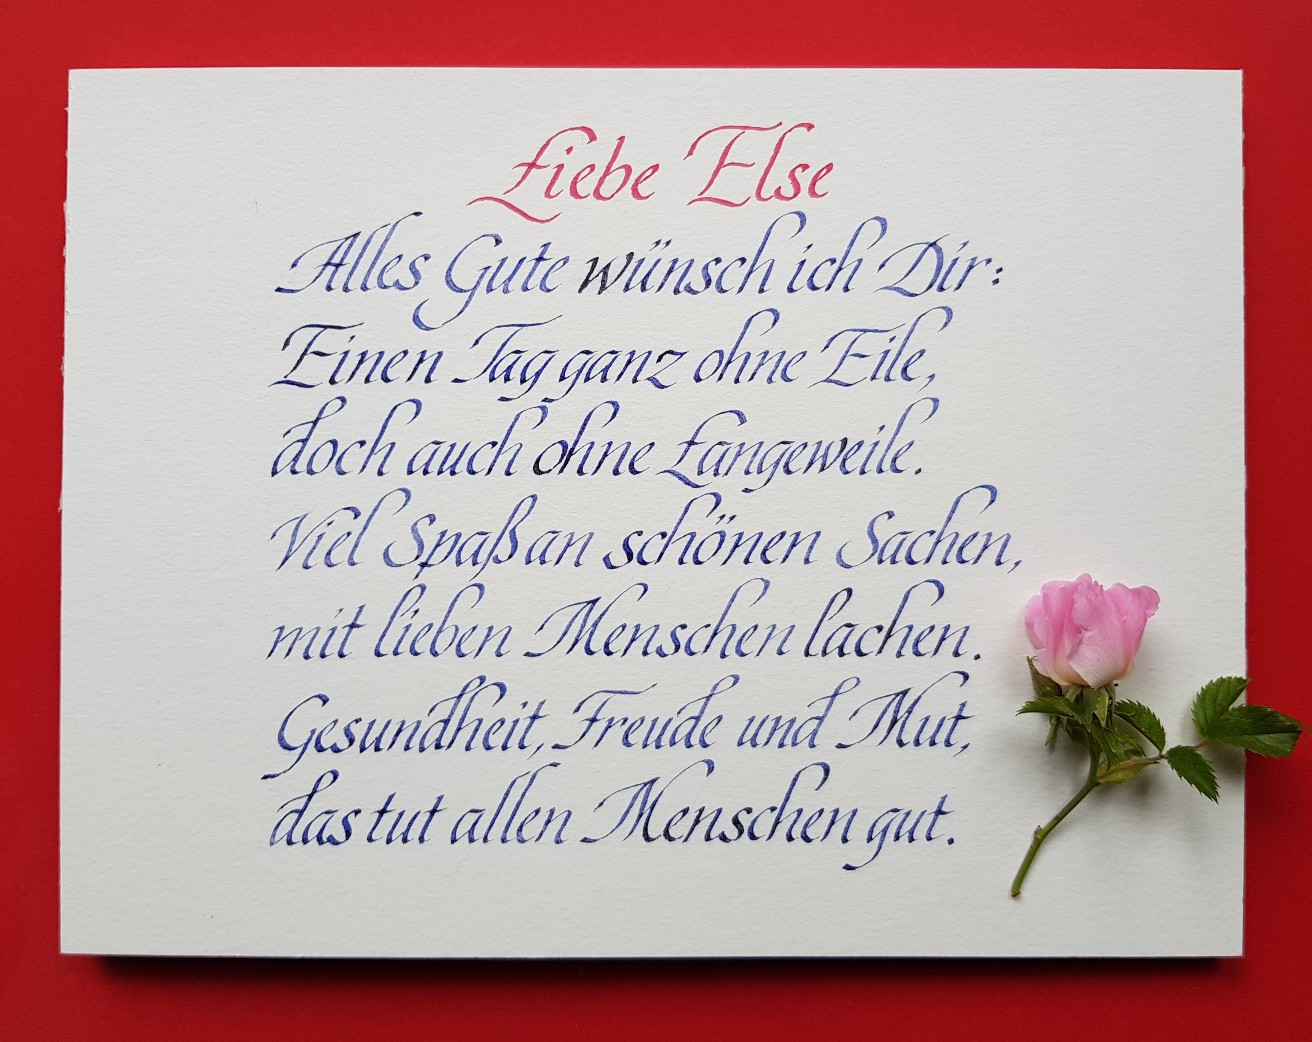 Liebe Else
Alles Gute wünsch ich Dir:
Einen Tag ganz ohne Eile,
doch auch ohne Langeweile.
Viel Spaß an schönen Sachen,
mit lieben Menschen lachen.
Gesundheit, Freude und Mut,
das tut allen Menschen gut.